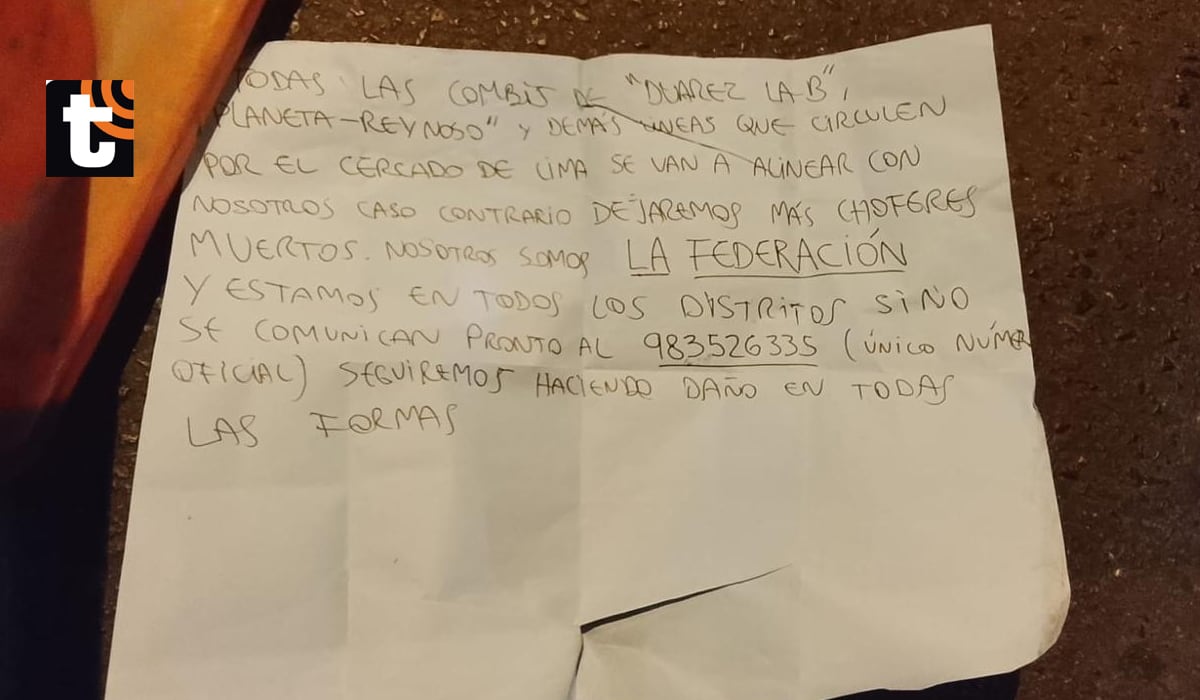 t
TODAS LAS COMBIS DE "DUAREZ LA-B",
PLANETA-REYNOSO" Y DEMÁS LINEAS QUE CIRCULEN
POR EL CERCADO DE LIMA SE VAN A ALINEAR CON
NOSOTROS CASO CONTRARIO DEJAREMOS MÁS CHOFERES
MUERTOS. NOSOTROS SOMOS LA FEDERACIÓN
Y ESTAMOS EN TODOS LOS DISTRITOS SINO
SE COMUNICAN PRONTO AL 983526335 (ÚNICO NÚMER
OFICIAL) SEGUIREMOS HACIENDO DAÑO EN TODAS
LAS FORMAS